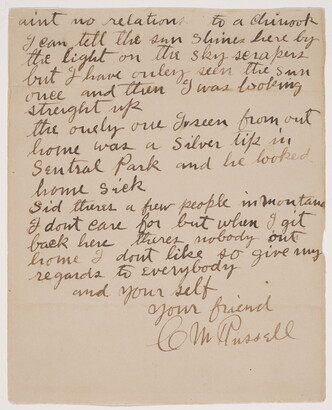 aint no relation to a Chinook
I can tell the sun shines here by
the light on the sky scrapers
but I have onley seen the sun
once and then I was looking
streight up
the onely one I seen from out
home was a Silver tip in
Sentral Park and he looked
home sick
Sid theres a few people in montana
I dont care for but when I git
back here theres nobody out
home I dont like so give my
regards to everybody
and your self
your friend
C M Russell